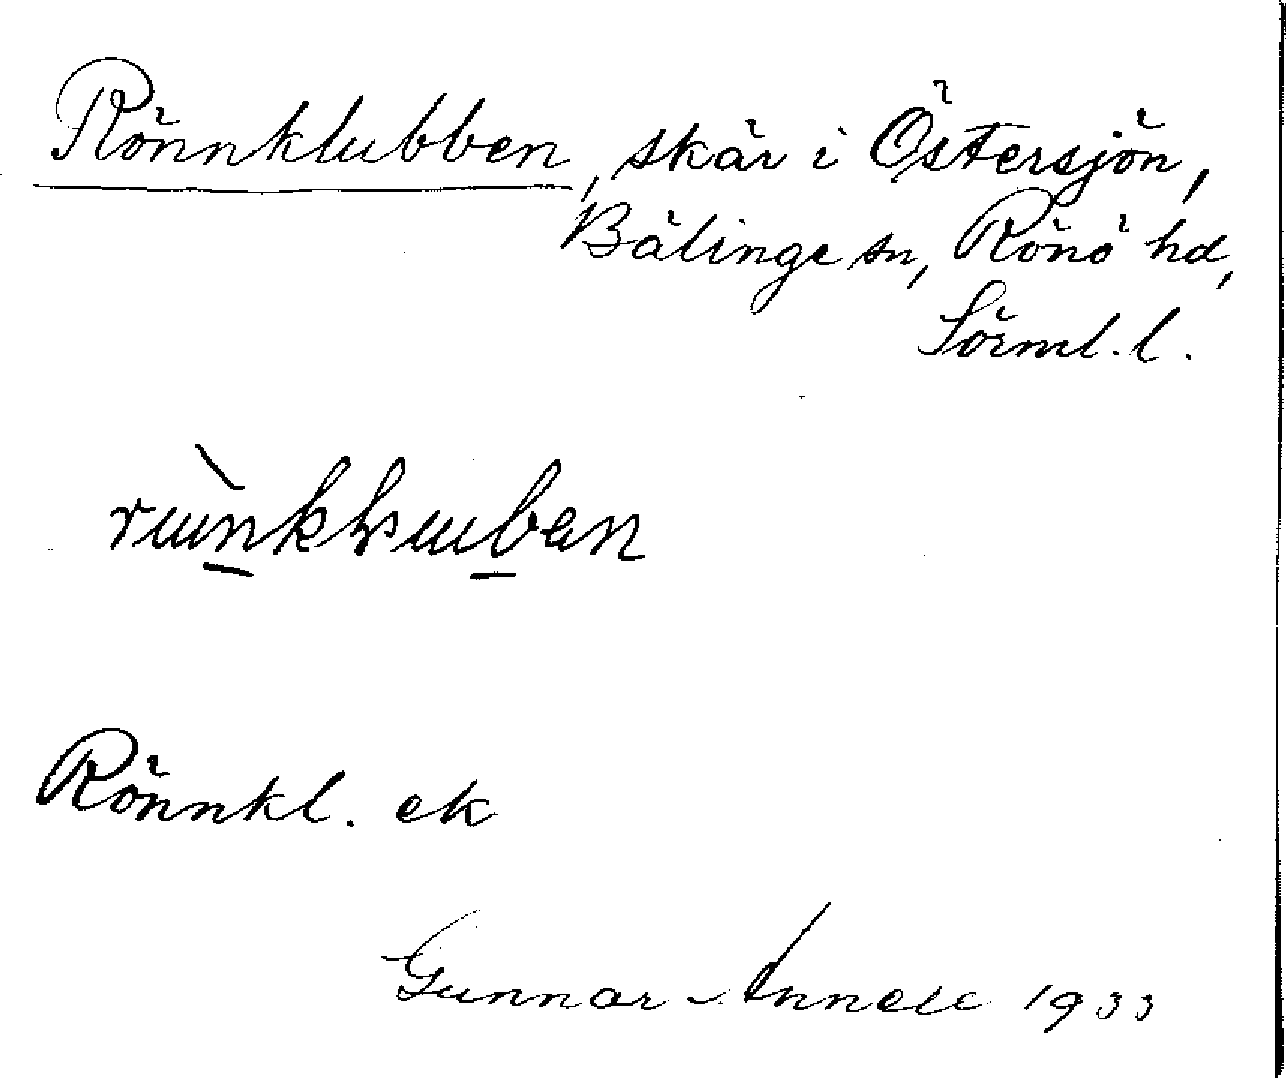 Rönnklubben, skär i Östersjön,
Bälinge sn, Rönö hd,
Sörml. l.
Rönnkl. ek
Gunnar Annell 1933